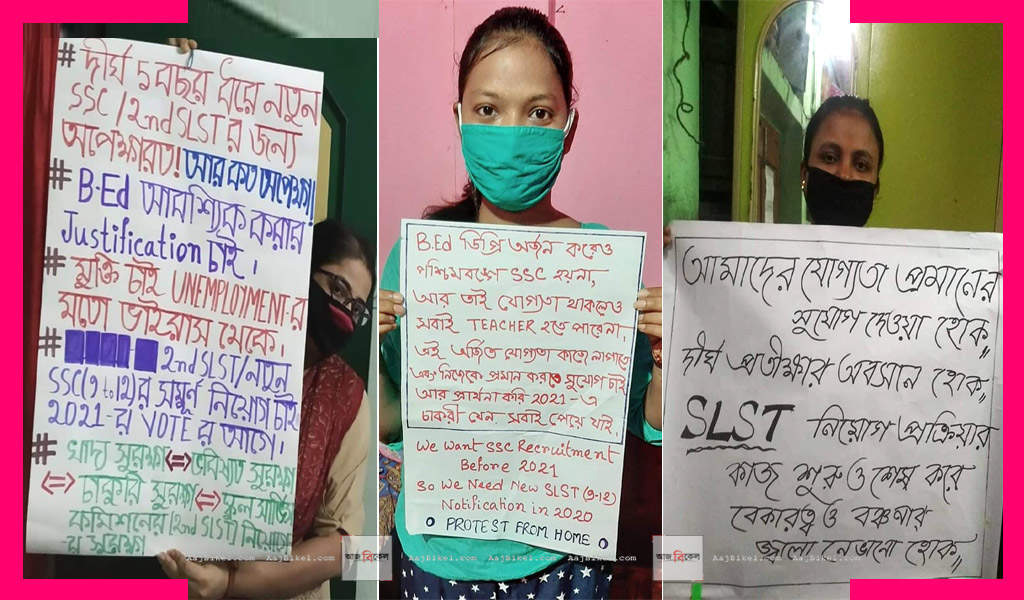 # দীর্ঘ 5 বছর ধরে নতুন
SSC / 2nd SLST র জন্য
অপেক্ষারত! আর কত অপেক্ষা!
# B.Ed আবশ্যিক করার
Justification চাই।
# মুক্তি চাই UNEMPLOYMENT-র
মতো ভাইরাস থেকে।
# 2nd SLST/নতুন
SSC(9 to 12)র সম্পূর্ণ নিয়োগ চাই
2021-র VOTE র আগে।
# খাদ্য সুরক্ষা <=> ভবিষ্যত সুরক্ষা
<=> চাকুরি সুরক্ষা <=> স্কুল সার্ভিস
কমিশনের (2nd SLST) নিয়োগ
-র সুরক্ষা
B.Ed ডিগ্রি অর্জন করেও
পশ্চিমবঙ্গে SSC হয়না,
আর তাই যোগ্যতা থাকলেও
সবাই TEACHER হতে পারেনা,
এই অর্জিত যোগ্যতা কাজে লাগাতে
এবং নিজেকে প্রমান করার সুযোগ চাই
আর প্রার্থনা করি 2021-এ
চাকরী যেন সবাই পেয়ে যাই.
We want SSC Recruitment
Before 2021
So We Need New SLST (9-12)
Notification in 2020
PROTEST FROM HOME
আমাদের যোগ্যতা প্রমানের
সুযোগ দেওয়া হোক"
দীর্ঘ প্রতীক্ষার অবসান হোক"
SLST নিয়োগ প্রক্রিয়ার
কাজ শুরু ও শেষ করে
বেকারত্ব ও বঞ্চনার
জ্বালা নেভানো হোক"
আজ বিকেল
AajBikel.com AajBikel.com AajBikel.com
আজ বিকেল
AajBikel.com AajBikel.com AajBikel.com